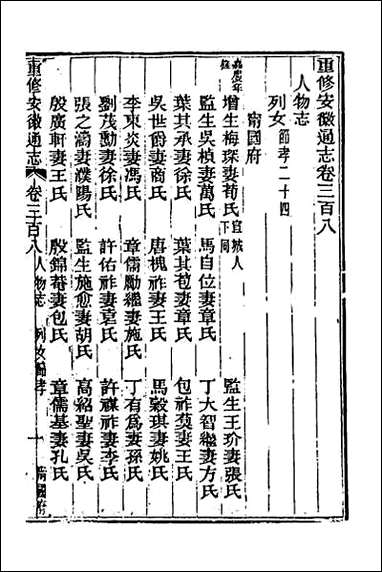 重修安徽通志卷三百八
人物志
列女 節孝二十四
甯國府
增生梅琛妻荀氏 宣城人下同 監生王玠妻張氏
監生吳楨妻萬氏 馬自位妻章氏 丁大智繼妻方氏
葉其承妻徐氏 葉其苞妻章氏 包祚蓂妻王氏
吳世爵妻商氏 唐槐祚妻王氏 馬穀琪妻姚氏
李東炎妻馮氏 章儒勵繼妻施氏 丁有爲妻孫氏
劉茂勳妻徐氏 許佑祚妻袁氏 許祺祚妻李氏
張之鴻妻濮陽氏 監生施愈妻胡氏 高紹聖妻吳氏
殷廣軒妻王氏 殷錦菴妻包氏 章儒基妻孔氏
重修安徽通志 卷三百八 人物志 列女節孝 一 甯國府